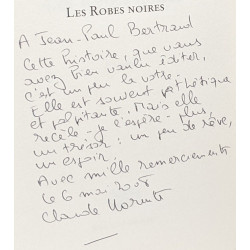 LES ROBES NOIRES
A Jean-Paul Bertrand
Cette histoire, que vous
avez bien voulu éditer,
c'est un peu la vôtre.
Elle est souvent pathétique
et palpitante. Mais elle
recèle, je l'espère, plus
un trésor : un peu de rêve,
un espoir.
Avec mille remerciements
le 6 mai 2008
Claude